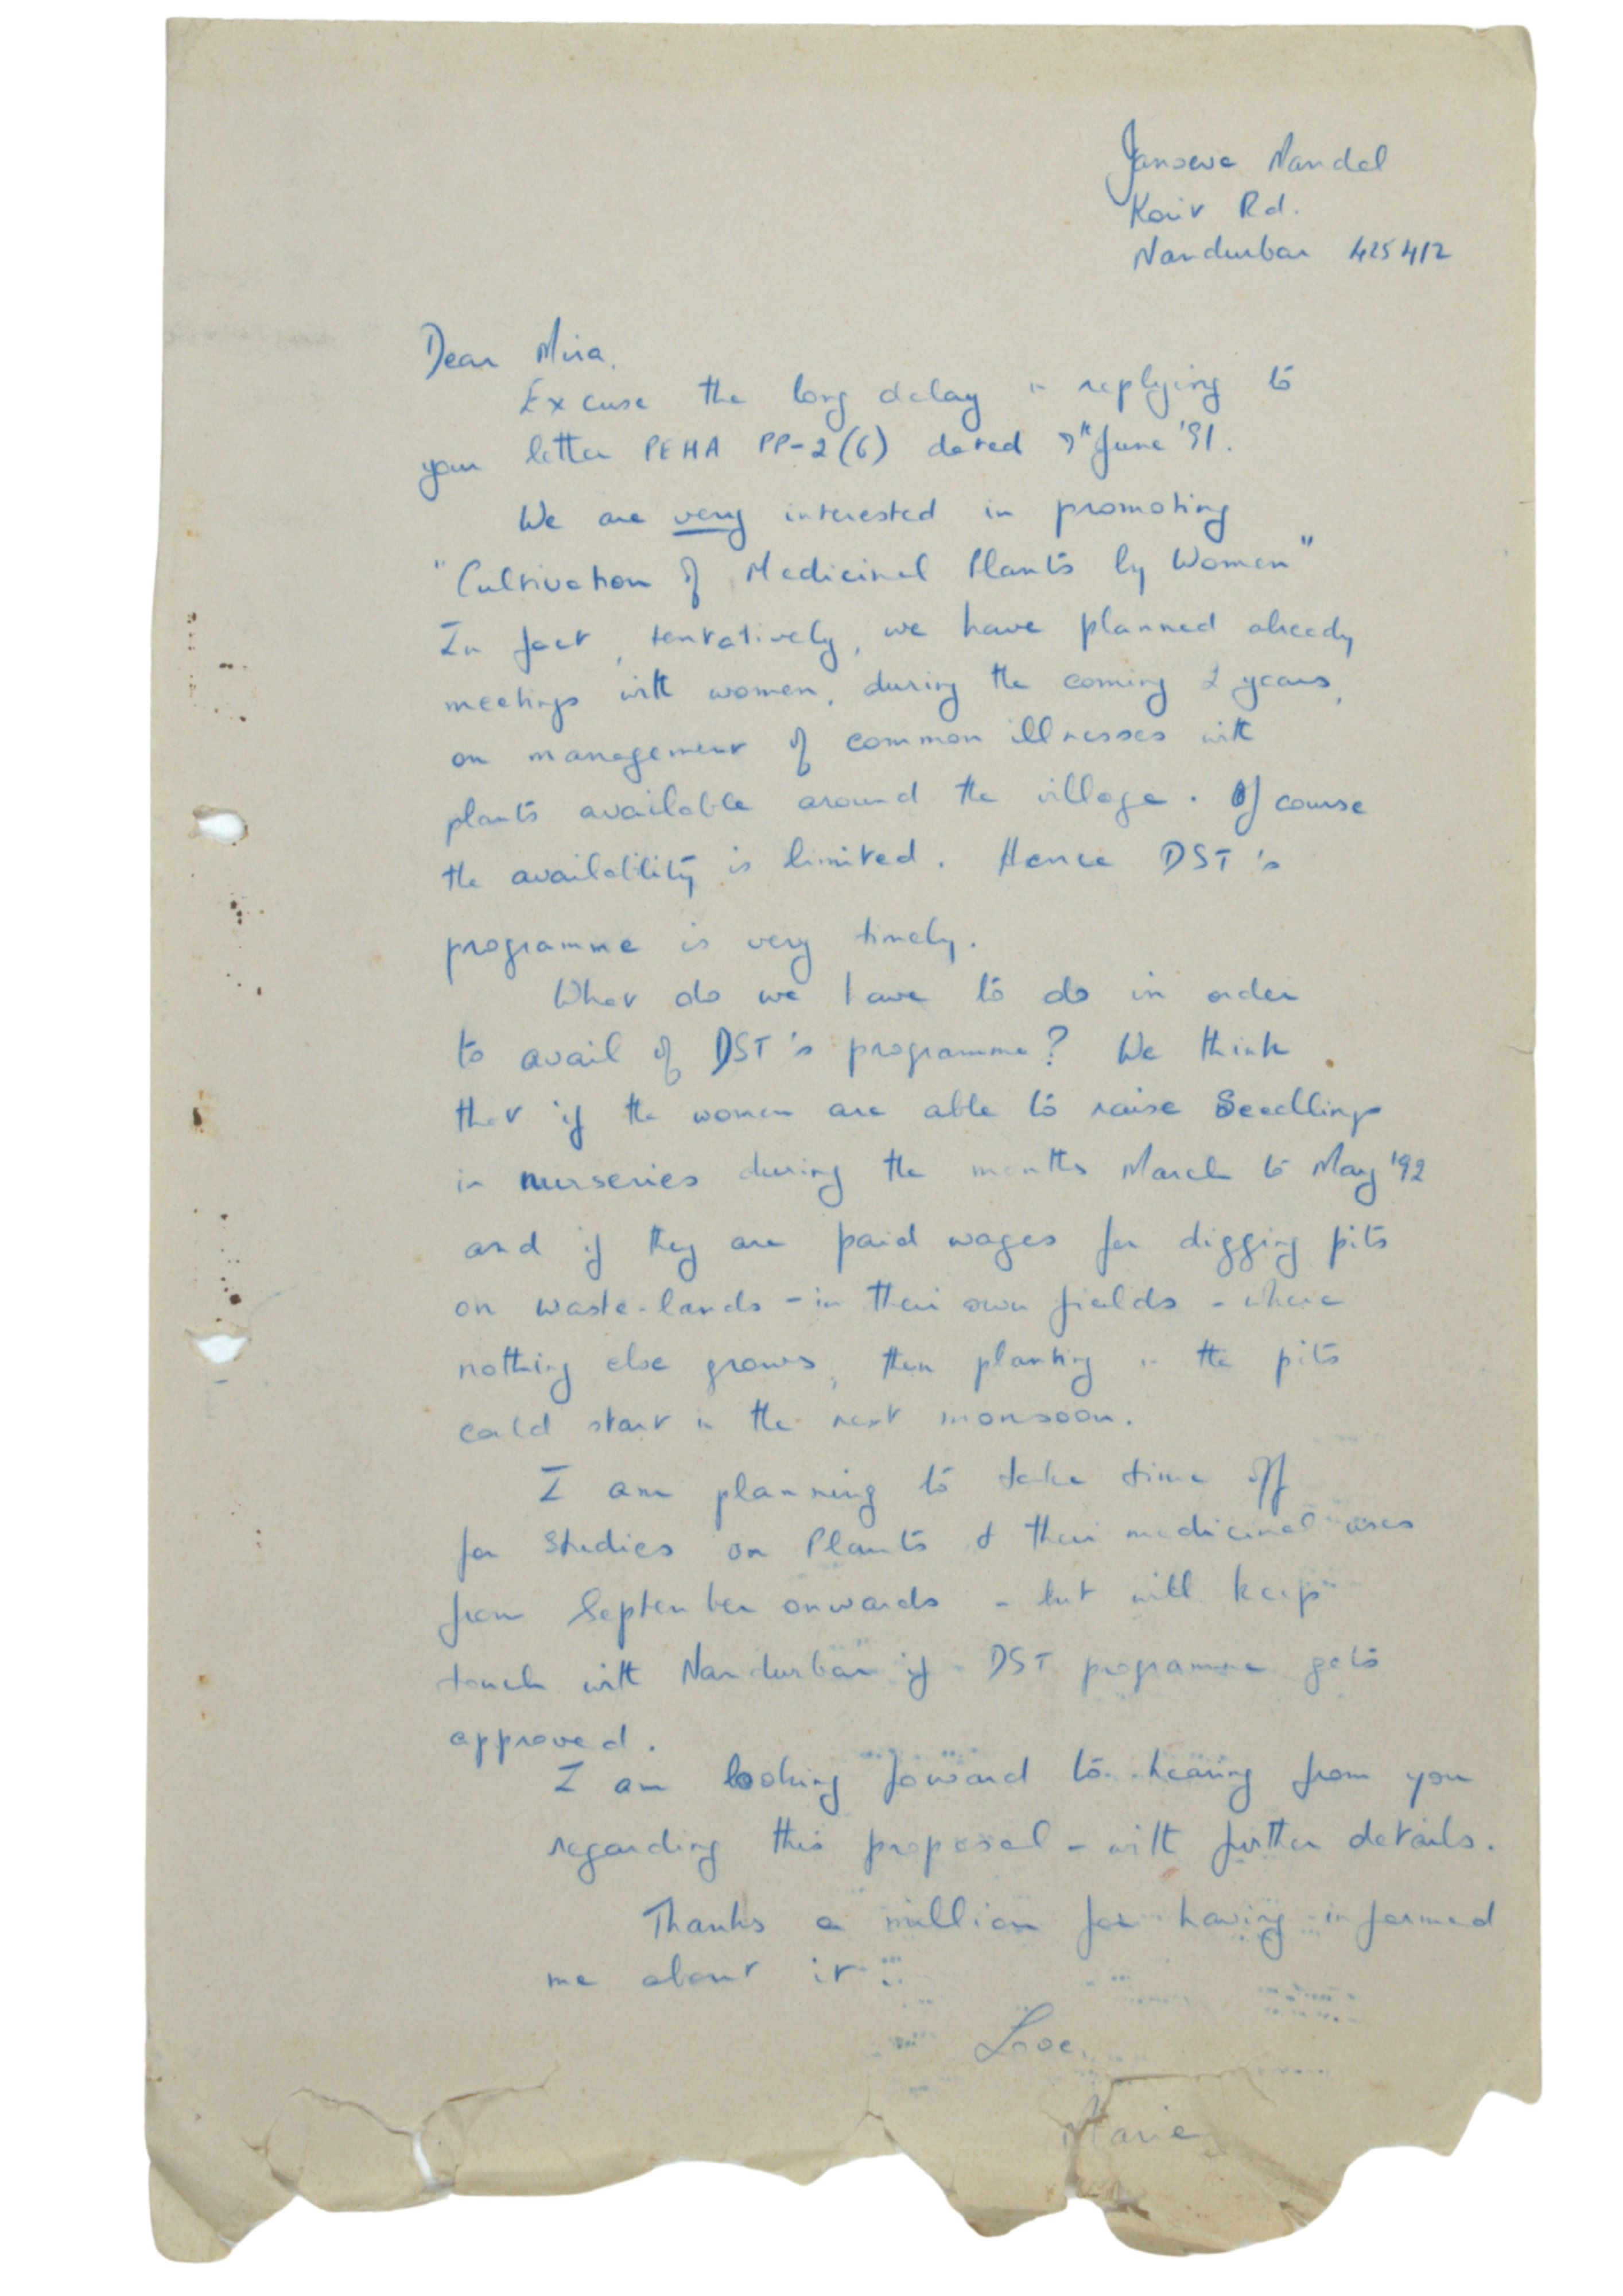 Janseva Mandal
Korit Rd.
Nandurbar 425412
Dear Mira,
Excuse the long delay in replying to
your letter PEHA PP-2(6) dated June '91.
We are very interested in promoting
"Cultivation of Medicinal Plants by Women"
In fact, tentatively, we have planned already
meetings with women, during the coming 2 years,
on management of common illnesses with
plants available around the village. Of course
the availability is limited. Hence DST's
programme is very timely.
What do we have to do in order
to avail of DST's programme? We think
that if the women are able to raise Seedlings
in nurseries during the months March to May '92
and if they are paid wages for digging pits
on waste-lands - in their own fields - where
nothing else grows, then planting in the pits
could start in the next monsoon.
I am planning to take time off
for Studies on Plants & their medicinal uses
from September onwards - but will keep
touch with Nandurbar if DST programme gets
approved.
I am looking foward to hearing from you
regarding this proposal - with further details.
Thanks a million for having informed
me about it
Love,
Marie